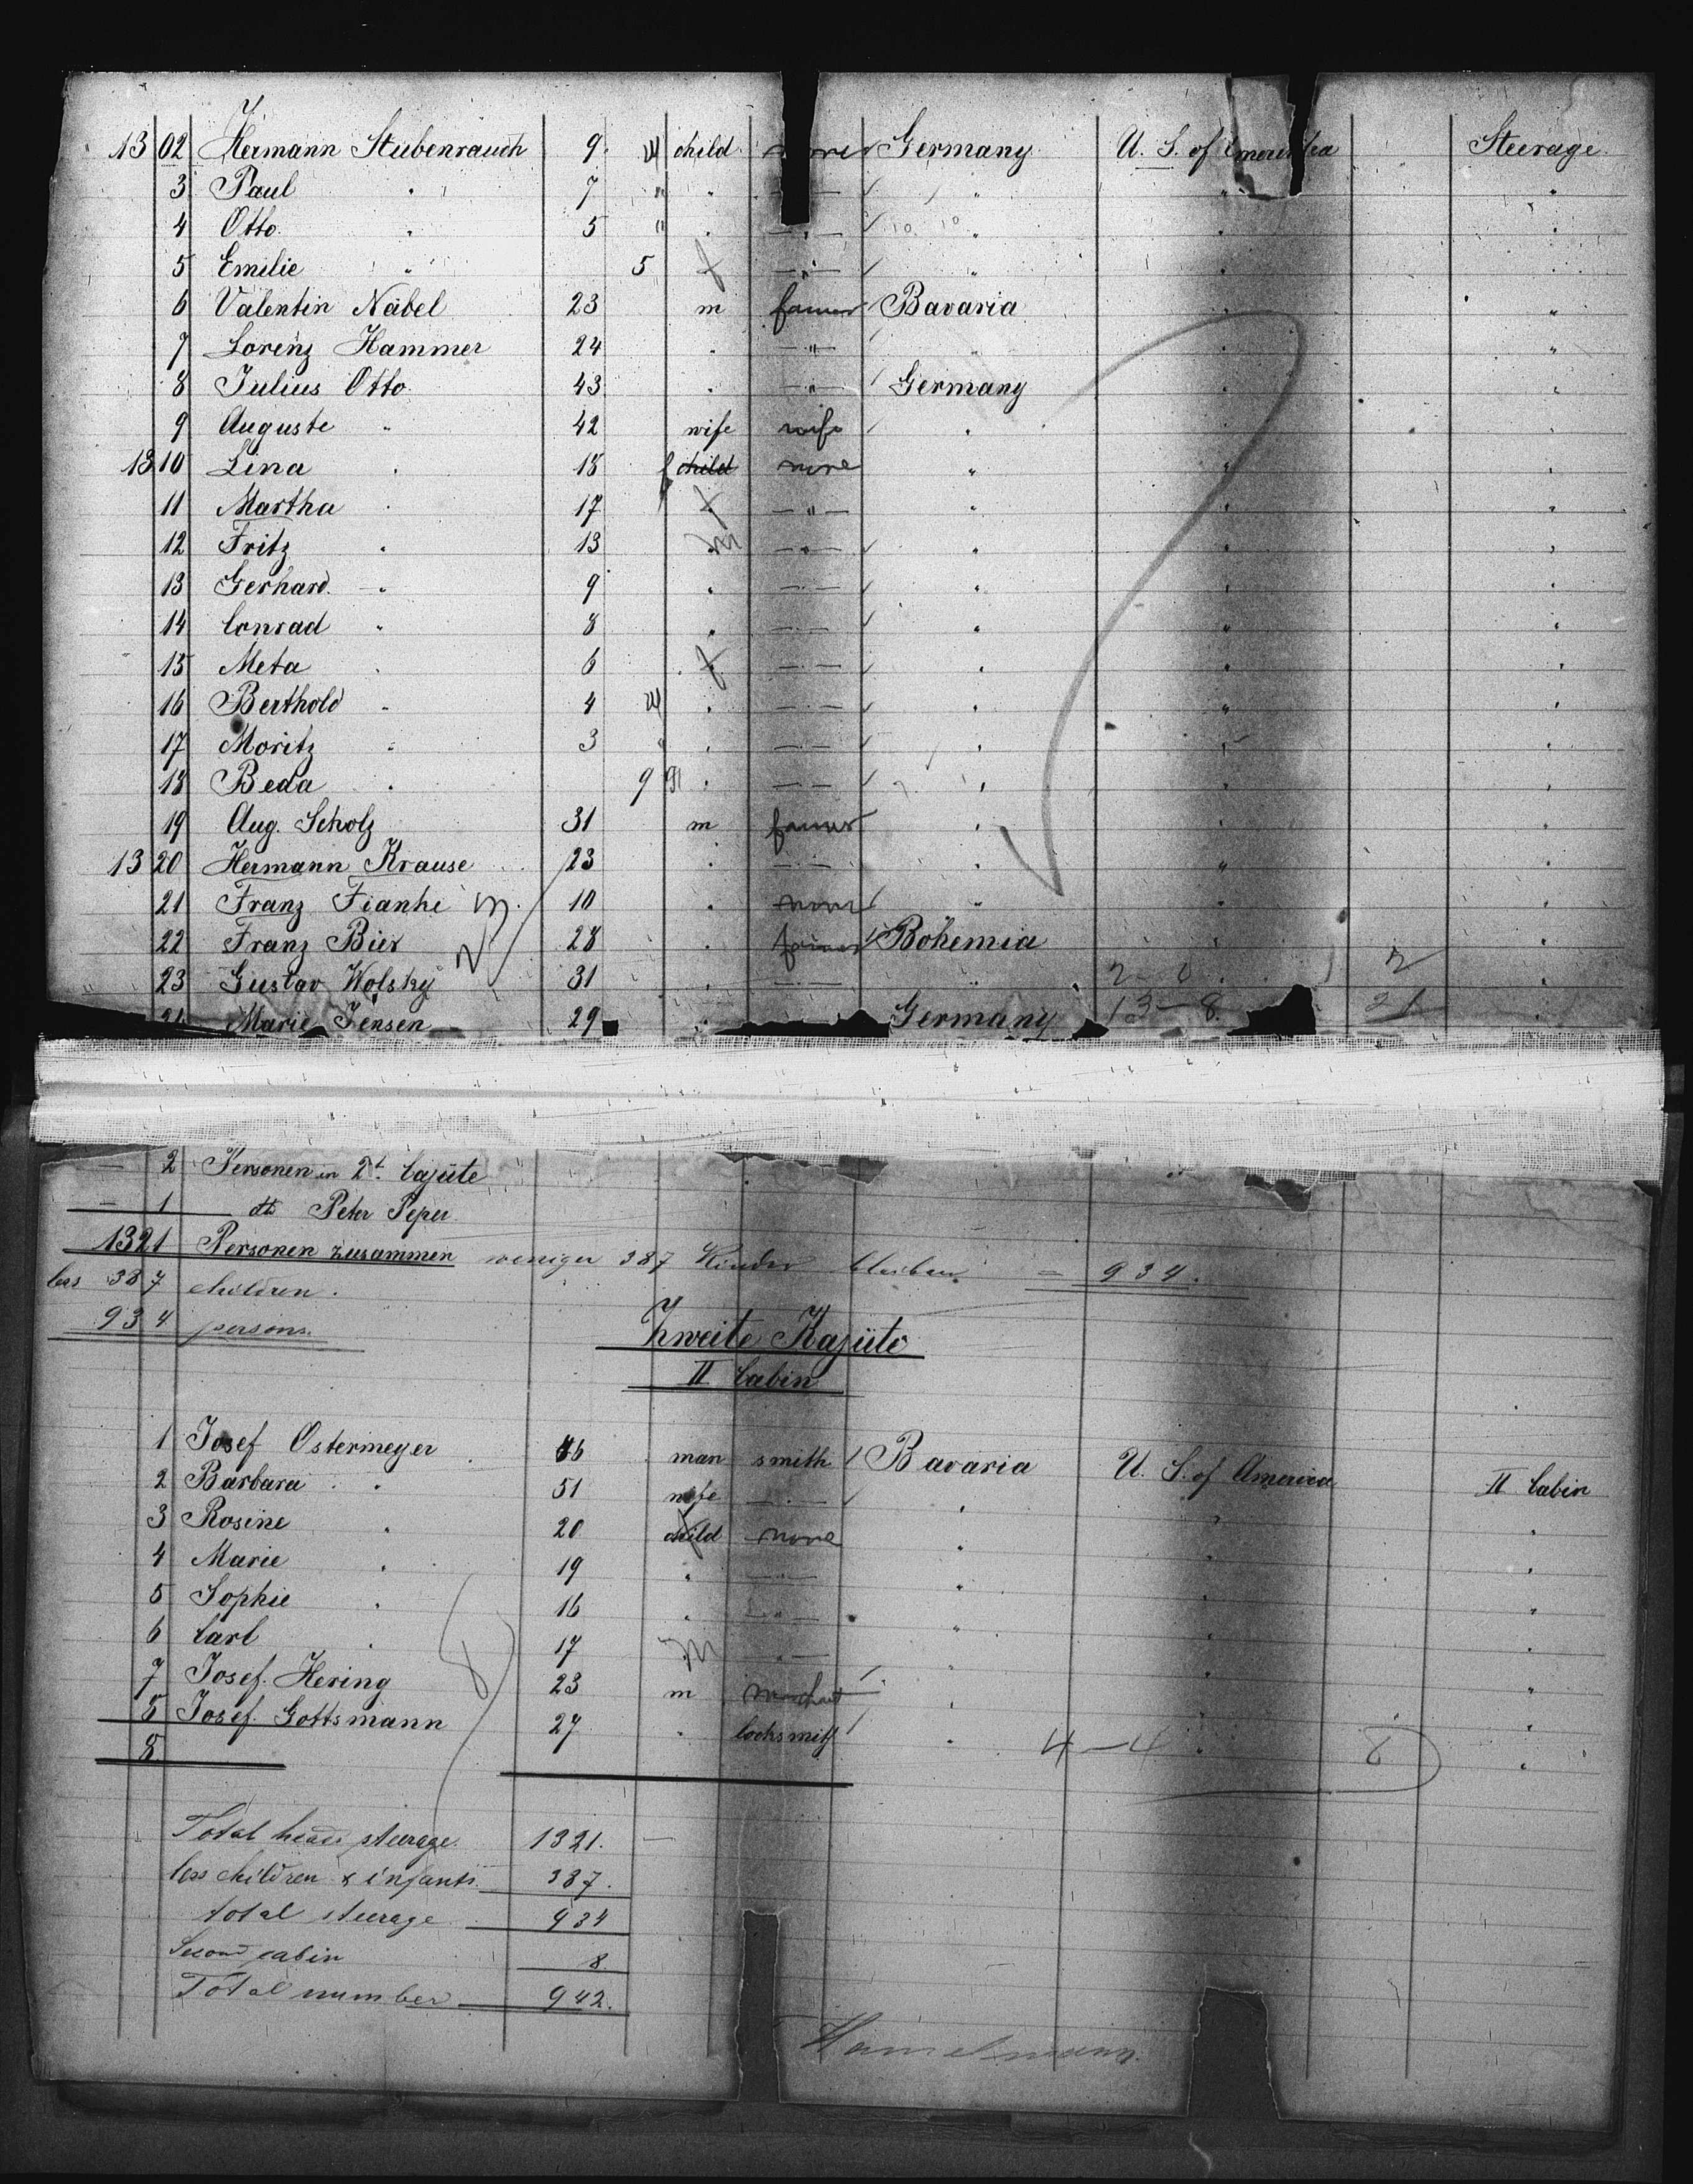 13 02 Hermann Stubenrauch 9. child none Germany U. S. of America Steerage
3 Paul " 7 " " — " "
4 Otto " 5 " " — " — " " "
5 Emilie " 5 f — " — " " "
6 Valentin Nabel 23 m farmer Bavaria " "
7 Lorenz Hammer 24 " — " — " " "
8 Julius Otto 43 " — " — Germany " "
9 Auguste " 42 wife wife " " "
13 10 Lina " 18 f child none " " "
11 Martha " 17 f — " — " " "
12 Fritz " 13 m — " — " " "
13 Gerhard — " 9 " — " — " " "
14 Conrad " 8 " — " — " " "
15 Meta " 6 f — " — " " "
16 Berthold " 4 " — " — " " "
17 Moritz " 3 " " — " — " " "
18 Beda " 9 " — " — " " "
19 Aug. Scholz 31 m farmer " " "
13 20 Hermann Krause 23 " — " — " " "
21 Franz Fianhe 10 " none " " "
22 Franz Bier 28 " farmer Bohemia " "
23 Gustav Wolsky 31 " — " — " "
Marie Jensen 29 " Germany 13 — 8 21 "
— 2 Personen in 2t. Cajüte
— 1 dto Peter Peper
1321 Personen zusammen weniger 387 Kinder bleiben = 934.
less 387 children.
934 persons.
Zweite Kajüte
II Cabin
1 Josef Ostermeyer 46 man smith Bavaria U. S. of America II Cabin
2 Barbara " 51 wife — " — " " "
3 Rosine " 20 child none " " "
4 Marie " 19 " — " — " " "
5 Sophie " 16 " — " — " " "
6 Carl " 17 m — " — " " "
7 Josef Hering 23 m merchant " " "
8 Josef Gottsmann 27 " locksmith " 4 — 4 " 8 "
8
Total heads steerage 1321. —
less children & infants 387.
total steerage 934
Second cabin 8
Total number 942.